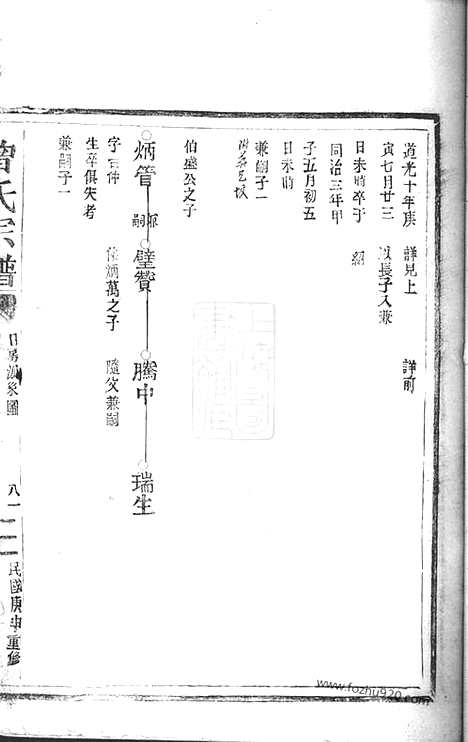 道光十年庚　詳見上　詳前
寅七月廿三　以長子入兼
日未時卒于　紹
同治三年甲
子五月初五
日未時
兼嗣子一
伯盛公之子
炳管　兼嗣　璧贊　騰中　瑞生
字　仲　炳萬之子　隨父兼嗣
生卒俱失考
兼嗣子一
曾氏宗譜
八一
民國庚申重修
www.fozhu920.com